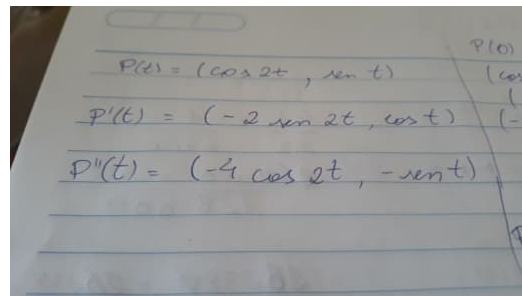 P(t) = (cos 2t, sen t)
P'(t) = (-2 sen 2t, cos t)
P''(t) = (-4 cos 2t, -sen t)
P(0)
(cos
(
(-